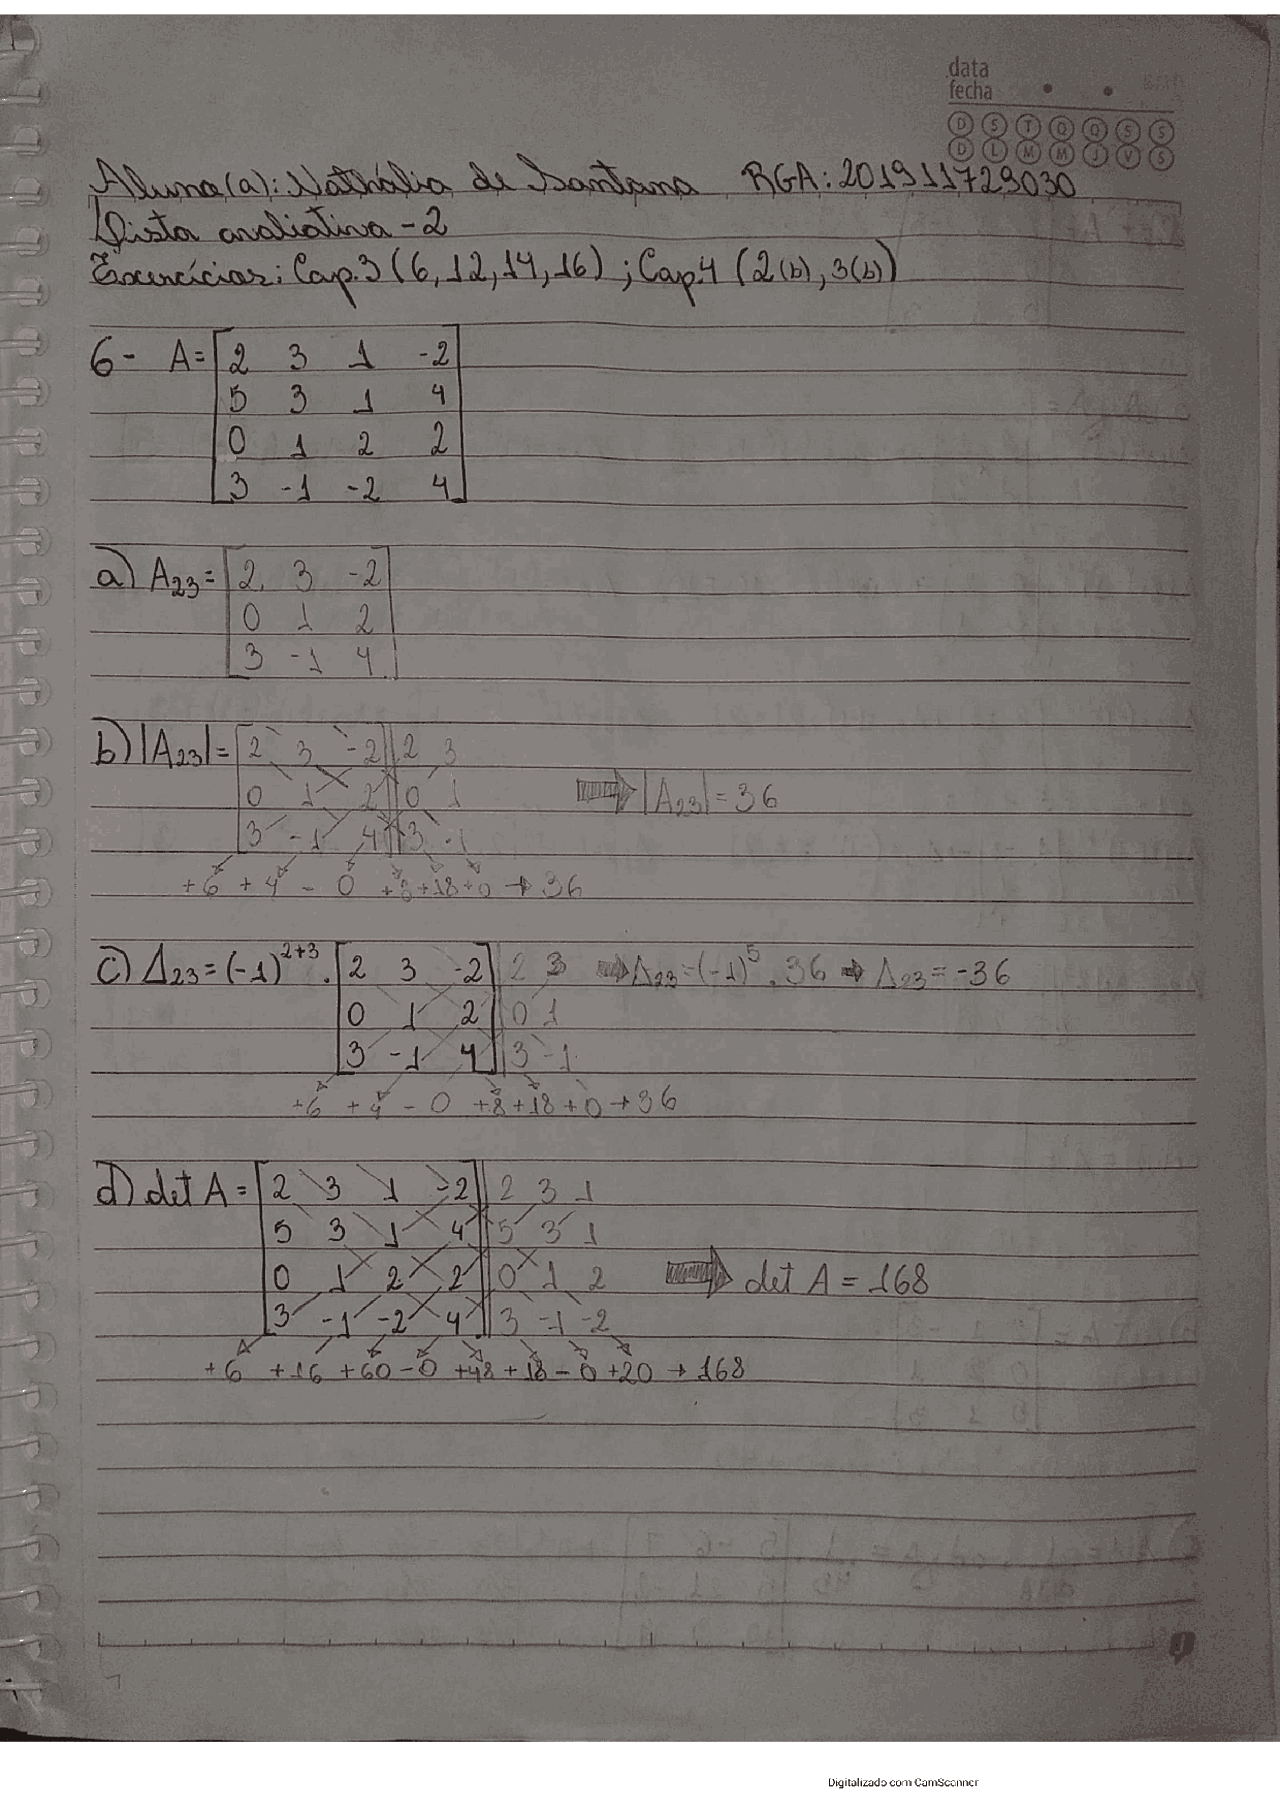 data
fecha
D S T Q Q S S
D L M M J V S
Aluno(a): Nathália de Santana RGA: 201911729030
Lista avaliativa - 2
Exercícios: Cap.3 (6, 12, 14, 16) ; Cap.4 (2(b), 3(b))
6- A = [2 3 1 -2
5 3 1 4
0 1 2 2
3 -1 -2 4]
a) A23 = [2 3 -2
0 1 2
3 -1 4]
b) |A23| = [2 3 -2] 2 3
0 1 2 0 1 ⇒ |A23| = 36
3 -1 4 3 -1
+6 +4 - 0 +8 +18 +0 → 36
c) Δ23 = (-1)^2+3 . [2 3 -2] 2 3 ⇒ Δ23 = (-1)^5 . 36 → Δ23 = -36
0 1 2 0 1
3 -1 4 3 -1
+6 +4 - 0 +8 +18 +0 → 36
d) det A = [2 3 1 -2] 2 3 1
5 3 1 4 5 3 1
0 1 2 2 0 1 2 ⇒ det A = 168
3 -1 -2 4 3 -1 -2
+6 +16 +60 -0 +48 +18 -0 +20 → 168
Digitalizado com CamScanner